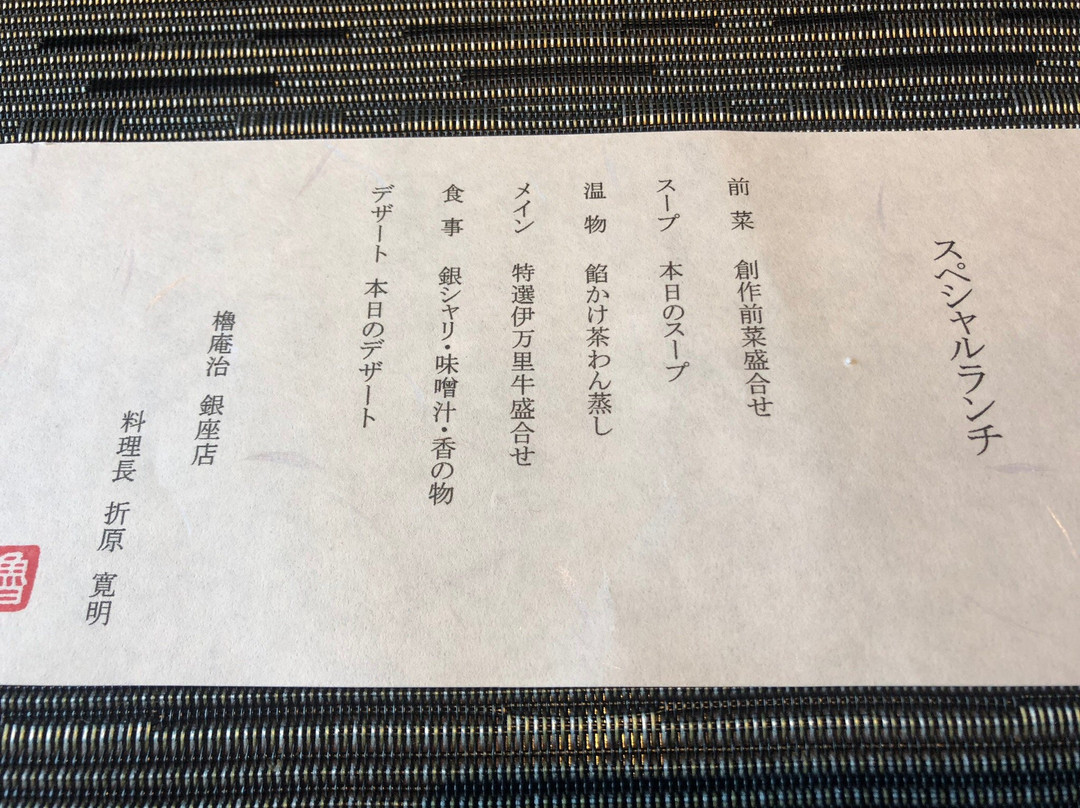 スペシャルランチ
前菜 創作前菜盛合せ
スープ 本日のスープ
温物 餡かけ茶わん蒸し
メイン 特選伊万里牛盛合せ
食事 銀シャリ・味噌汁・香の物
デザート 本日のデザート
櫓庵治 銀座店
料理長 折原 寛明